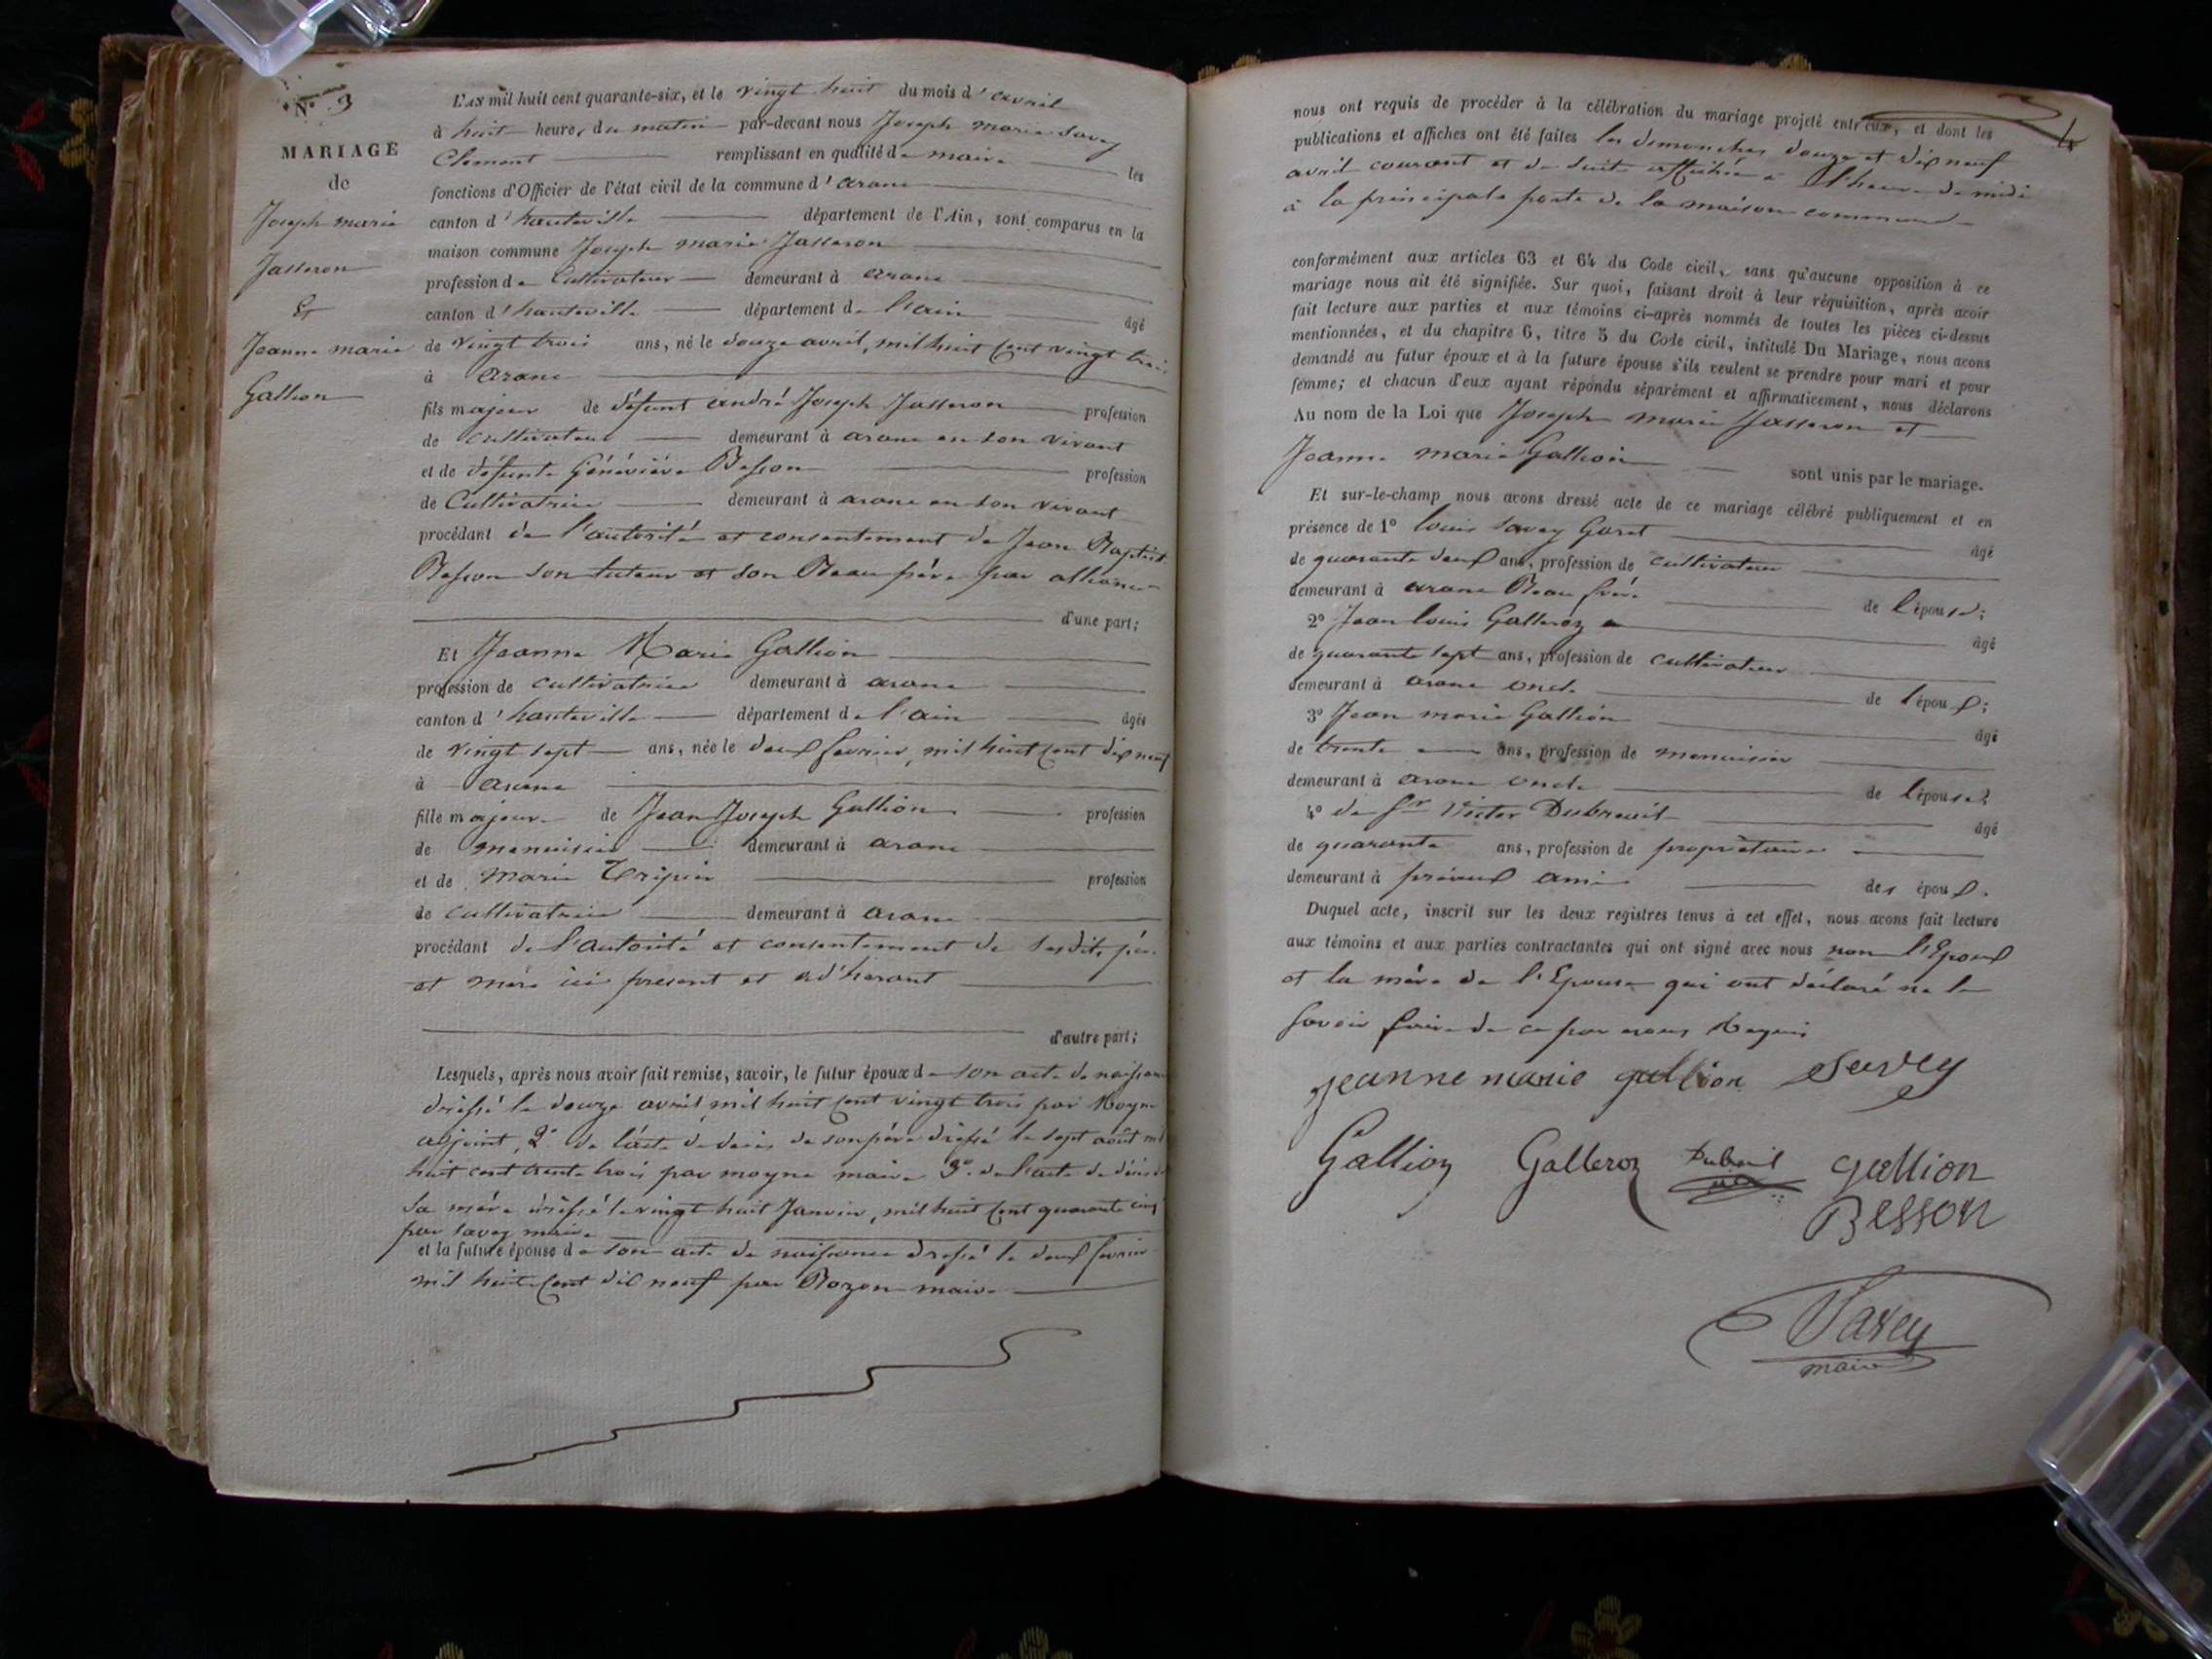 N° 3
MARIAGE
de
Joseph marie
Jasseron
Et
Jeanne marie
Gallion
L'AN mil huit cent quarante-six, et le vingt huit du mois d'avril
à huit heures du matin par-devant nous Joseph marie Savey
Clement remplissant en qualité de maire les
fonctions d'Officier de l'état civil de la commune d'arane
canton d'hauteville département de l'Ain, sont comparus en la
maison commune Joseph marie Jasseron
profession de Cultivateur demeurant à arane
canton d'hauteville département de l'ain âgé
de vingt trois ans, né le douze avril, mil huit cent vingt trois
à arane
fils majeur de défunt andré Joseph Jasseron profession
de cultivateur demeurant à arane en son vivant
et de défunte Généviève Besson profession
de Cultivatrice demeurant à arane en son vivant
procédant de l'autorité et consentement de Jean Baptiste
Besson son tuteur et son Beau père par alliance
d'une part;
Et Jeanne Marie Gallion
profession de cultivatrice demeurant à arane
canton d'hauteville département de l'ain âgée
de vingt sept ans, née le deux fevrier, mil huit cent dix neuf
à arane
fille majeure de Jean Joseph Gallion profession
de menuisier demeurant à arane
et de marie Tripier profession
de cultivatrice demeurant à arane
procédant de l'autorité et consentement de sesdits père
et mère ici present et adhérant
d'autre part;
Lesquels, après nous avoir fait remise, savoir, le futur époux de son acte de naissance
dréssé le douze avril mil huit cent vingt trois par Moyne
adjoint, 2° de l'acte de décès de son père dréssé le sept août mil
huit cent trente trois par moyne maire 3° de l'acte de décès de
sa mère dréssé le vingt huit Janvier, mil huit cent quarante cinq
par savey maire
et la future épouse de son acte de naissance dressé le deux fevrier
mil huit cent dix neuf par Bozon maire
nous ont requis de procéder à la célébration du mariage projeté entr'eux, et dont les
publications et affiches ont été faites les dimanches douze et dix neuf
avril courant et de suite affichée à l'heure de midi
à la principale porte de la maison commune
conformément aux articles 63 et 64 du Code civil, sans qu'aucune opposition à ce
mariage nous ait été signifiée. Sur quoi, faisant droit à leur réquisition, après avoir
fait lecture aux parties et aux témoins ci-après nommés de toutes les pièces ci-dessus
mentionnées, et du chapitre 6, titre 5 du Code civil, intitulé Du Mariage, nous avons
demandé au futur époux et à la future épouse s'ils veulent se prendre pour mari et pour
femme; et chacun d'eux ayant répondu séparément et affirmativement, nous déclarons
Au nom de la Loi que Joseph marie Jasseron et
Jeanne marie Gallion sont unis par le mariage.
Et sur-le-champ nous avons dressé acte de ce mariage célébré publiquement et en
présence de 1° louis savey Goret âgé
de quarante deux ans, profession de cultivateur
demeurant à arane Beau frère de l'épouse;
2° Jean louis Galleroz âgé
de quarante sept ans, profession de cultivateur
demeurant à arane oncle de l'époux;
3° Jean marie Gallion âgé
de trente ans, profession de menuisier
demeurant à arane oncle de l'épouse
4° de Sr Victor Dubreuil âgé
de quarante ans, profession de propriétaire
demeurant à ami des époux.
Duquel acte, inscrit sur les deux registres tenus à cet effet, nous avons fait lecture
aux témoins et aux parties contractantes qui ont signé avec nous non l'Epoux
et la mère de l'Epouse qui ont déclaré ne le
savoir faire de ce par nous Requis
jeanne marie gallion Savey
Gallion Galleroz Dubreuil gallion
Besson
Savey
maire